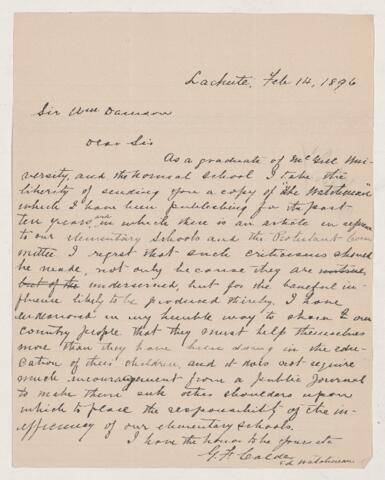 Lachute, Feb 14, 1896
Sir Wm Dawson
Dear Sir
As a graduate of McGill Uni-
versity, and the Normal School I take the
liberty of sending you a copy of "The Watchman"
which I have been publishing for the past
ten years, and in which there is an article in
to our elementary Schools and the Protestant Com-
mittee I regret that such criticisms should
be made, not only because they are
but of the undeserved, but for the baneful in-
fluence likely to be produced thereby. I have
endeavored in my humble way to show to our
country people that they must help themselves
more than they have been doing in the edu-
cation of their children, and it does not require
much encouragement from a Public Journal
to make them seek other shoulders upon
which to place the responsibility of the in-
efficiency of our elementary schools.
I have the honor to be yours etc
G. F. Calder
Ed Watchman